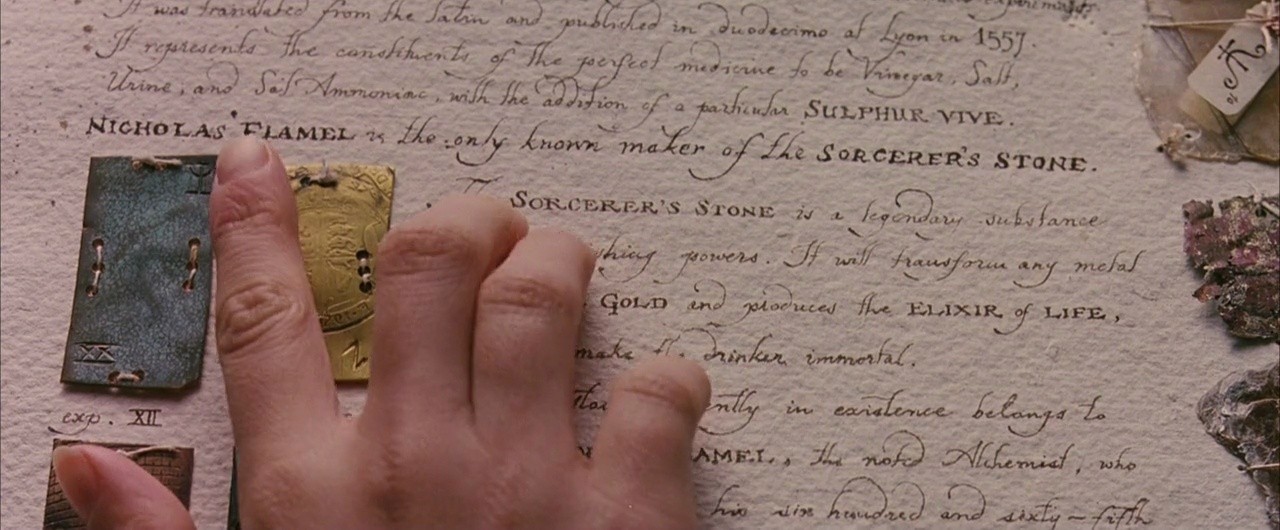 It was translated from the Latin and published in duodecimo at Lyon in 1557.
It represents the constituents of the perfect medicine to be Vinegar, Salt,
Urine, and Sal Ammoniac, with the addition of a particular SULPHUR VIVE.
NICHOLAS FLAMEL is the only known maker of the SORCERER'S STONE.
SORCERER'S STONE is a legendary substance
powers. It will transform any metal
GOLD and produces the ELIXIR of LIFE,
make the drinker immortal.
in existence belongs to
AMEL, the noted Alchemist, who
his six hundred and sixty-fifth
XX
exp. XII